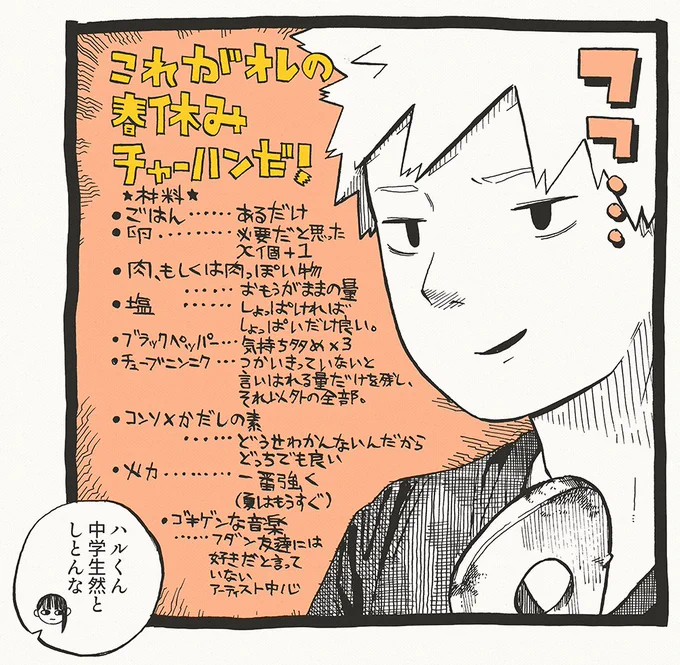 これがオレの
春休み
チャーハンだ!
★材料★
●ごはん……あるだけ
●卵………必要だと思った
X個+1
●肉、もしくは肉っぽい物
……おもうがままの量
●塩……しょっぱければ
しょっぱいだけ良い。
●ブラックペッパー…気持ち多め×3
●チューブニンニク…つかいきっていないと
言いはれる量だけを残し、
それ以外の全部。
●コンソメかだしの素
……どうせわかんないんだから
どっちでも良い
●火力………一番強く
(夏はもうすぐ)
●ゴキゲンな音楽
……フダン友達には
好きだと言って
いない
アーティスト中心
フフ…
ハルくん
中学生然と
しとんな